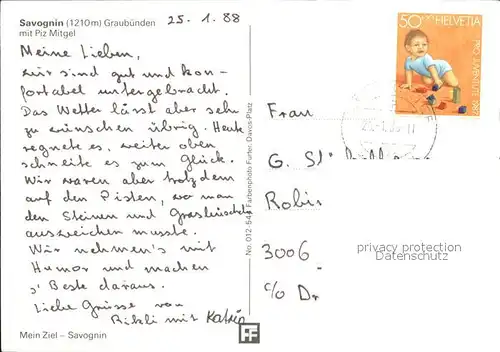 Savognin (1210 m) Graubünden
mit Piz Mitgel
25. 1. 88
Meine Lieben,
wir sind gut und kon-
fortabel untergebracht.
Das Wetter lässt aber sehr
zu wünschen übrig. Heute
regnete es, weiter oben
schneite es zum Glück.
Wir waren aber trotzdem
auf den Pisten, wo man
den Steinen und Grasbüscheln
ausweichen musste.
Wir nehmen's mit
Humor und machen
s' Beste daraus.
Liebe Grüsse von
Rikli mit Katrin
Mein Ziel – Savognin
Farbenphoto Furter, Davos-Platz
No. 012-54
FF
50 HELVETIA
PRO JUVENTUTE 1987
Frau
G. St
Robin
3006
c/o Dr
privacy protection
Datenschutz